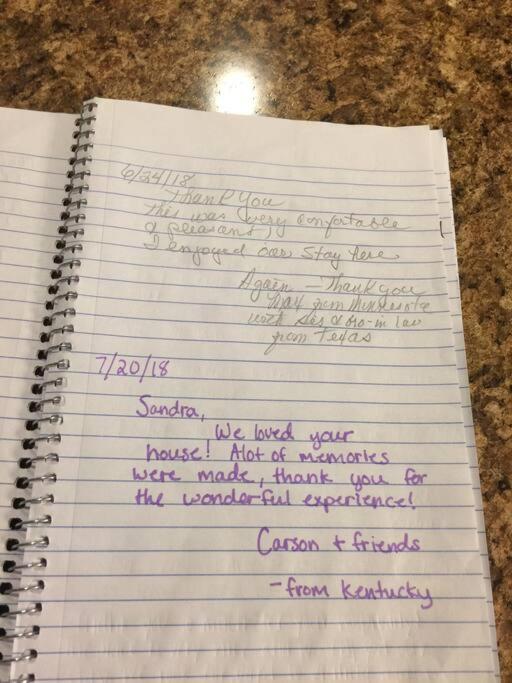 6/24/18
Thank You
this was very comfortable
& pleasant,
I enjoyed our stay here
Again - Thank you
from Minnesota
with Sis & bro-in law
from Texas
7/20/18
Sandra,
We loved your
house! Alot of memories
were made, thank you for
the wonderful experience!
Carson + friends
- from Kentucky